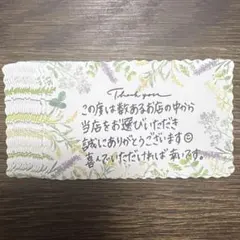 Thank you
この度は数あるお店の中から
当店をお選びいただき
誠にありがとうございます☺
喜んでいただければ幸いです。